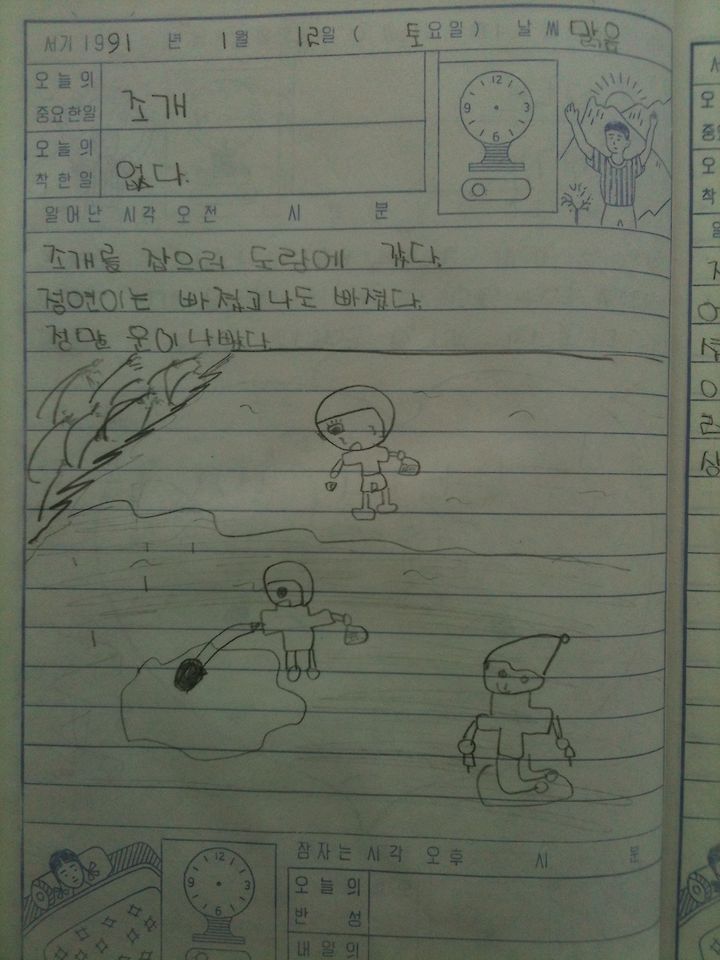 서기 1991 년 1월 12일 ( 토요일 ) 날씨 맑음
오늘의 중요한일 조개
오늘의 착한일 없다.
12
9 3
6
일어난 시각 오전 시 분
조개를 잡으러 도랑에 갔다.
정연이는 빠졌고나도 빠졌다.
정말 운이나빴다
잠자는 시각 오후 시 분
12
9 3
6
오늘의 반성
내일의